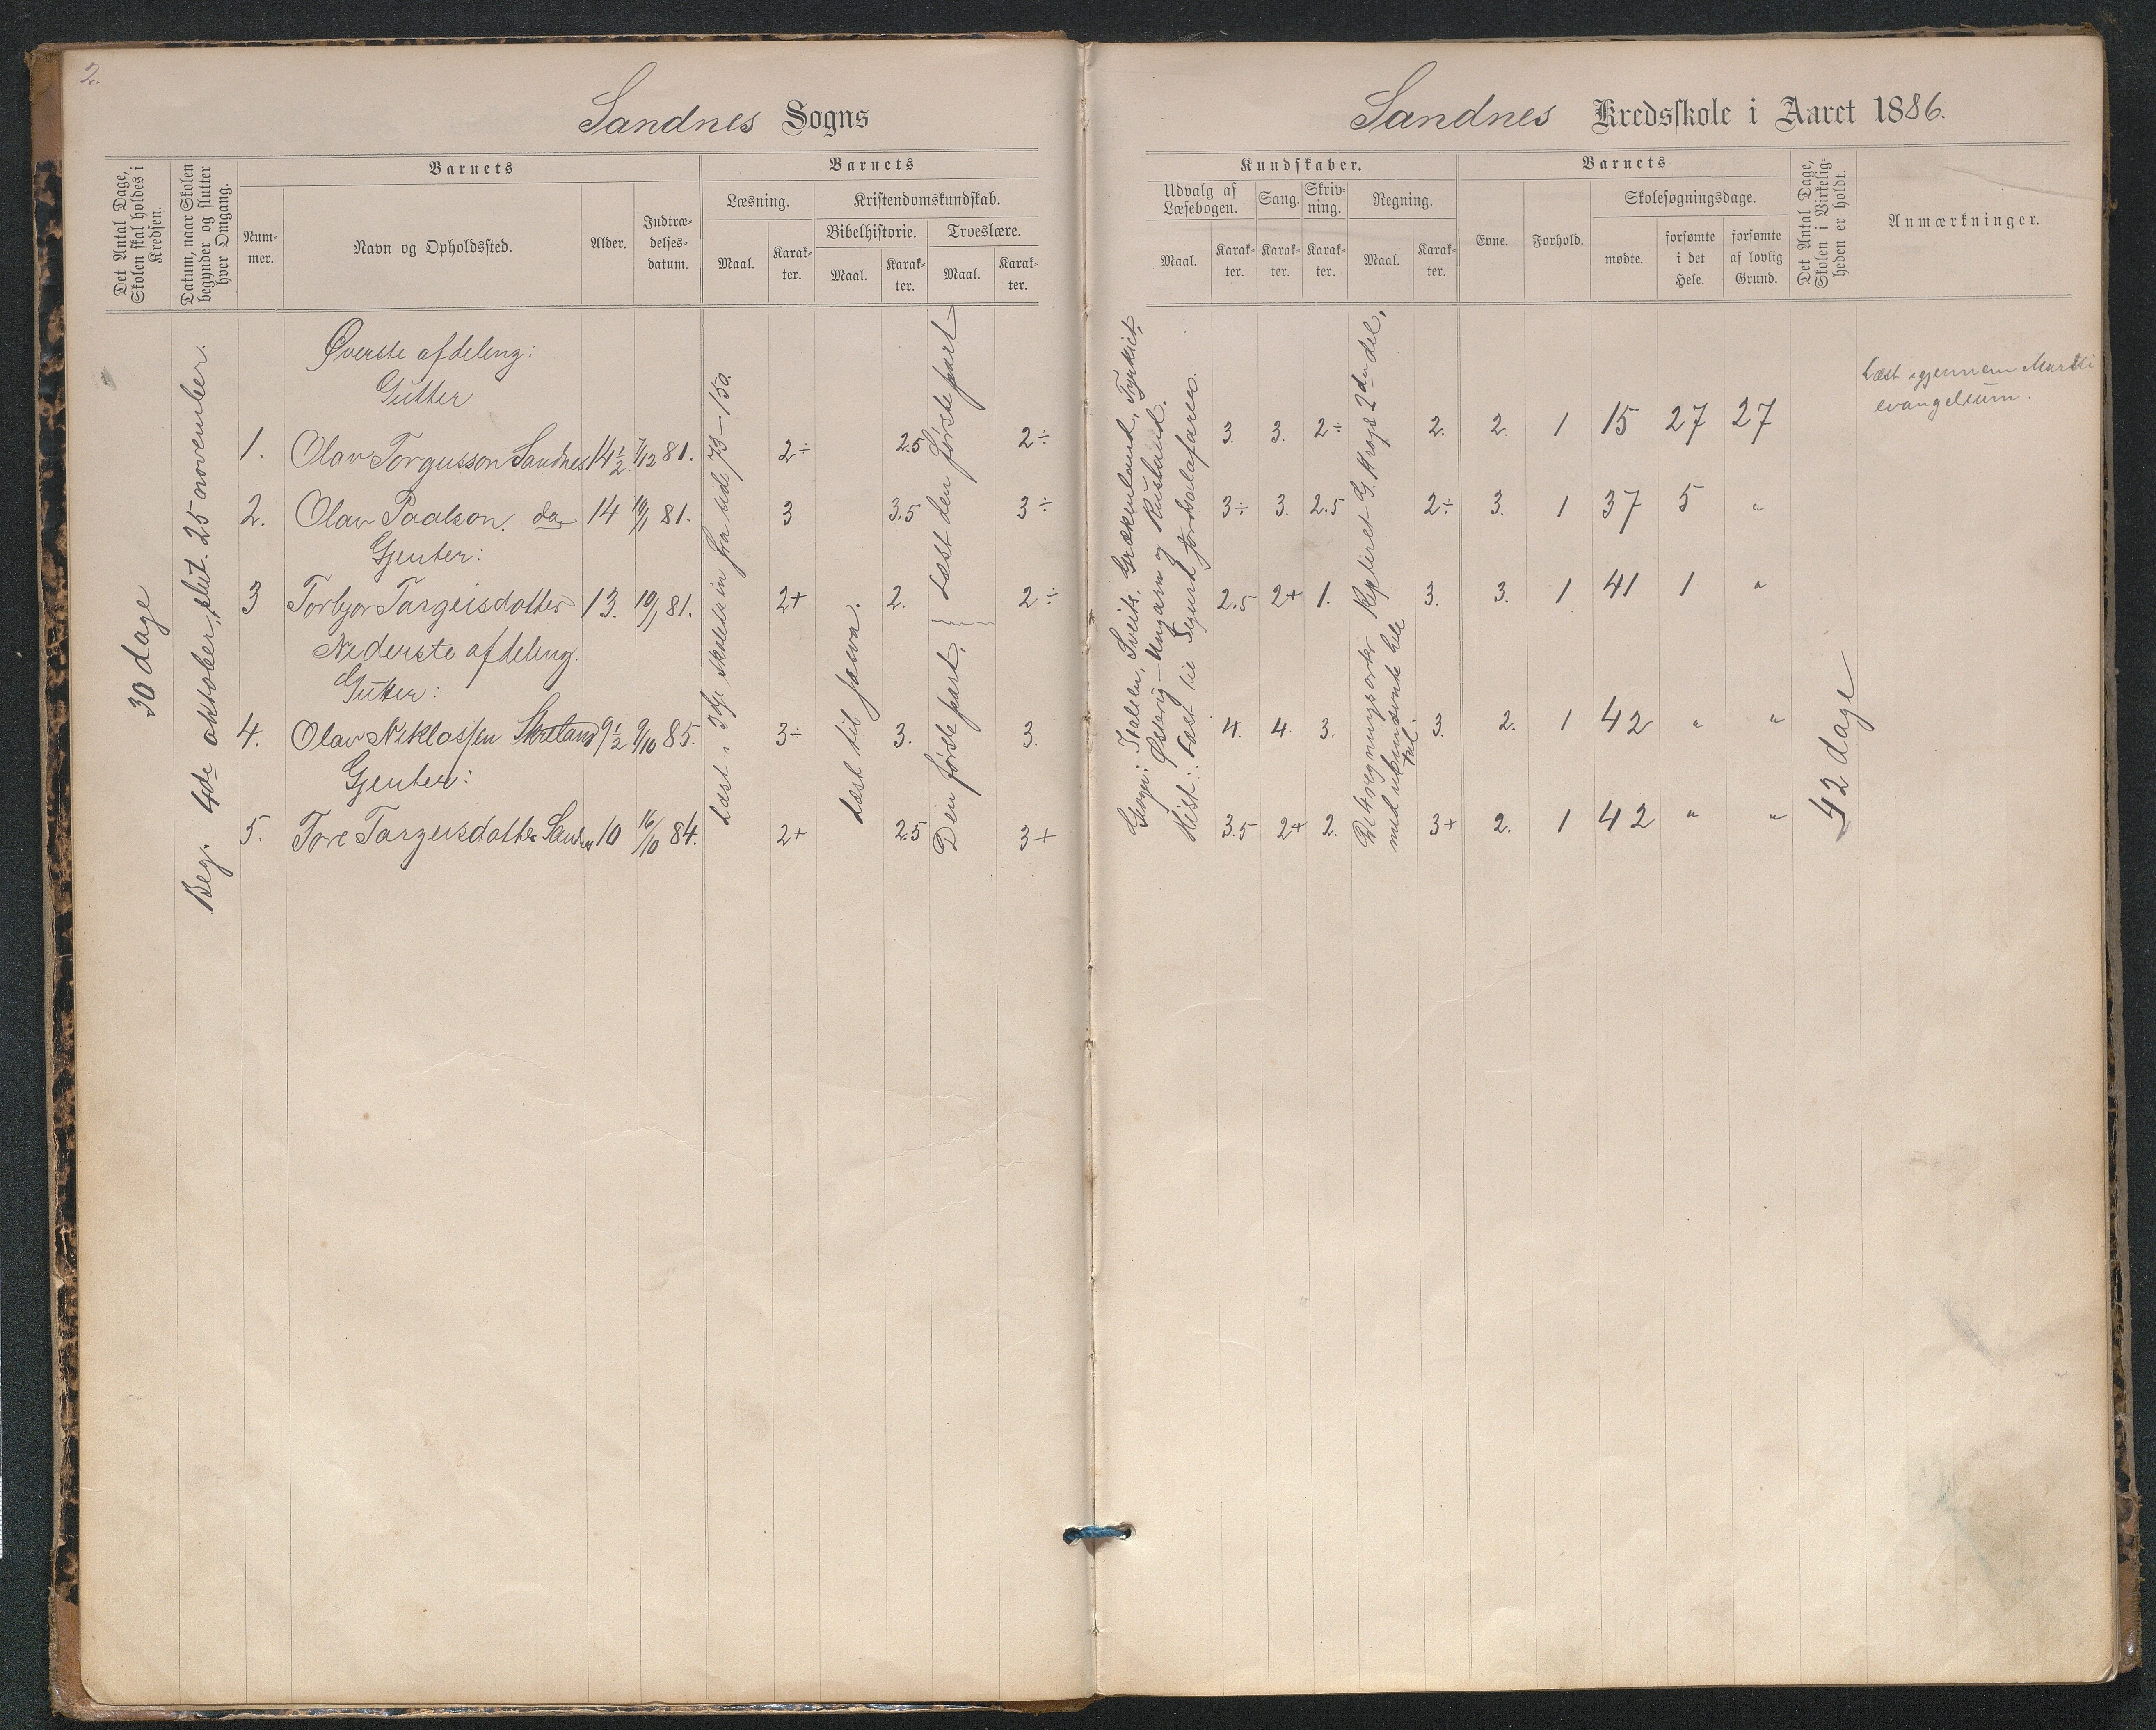 2.
Sandnes Sogns
Det Antal Dage, Skolen skal holdes i Kredsen.
Datum, naar Skolen begynder og slutter hver Omgang.
Barnets
Nummer.
Navn og Opholdssted.
Alder.
Indtrædelsesdatum.
Barnets
Læsning.
Maal.
Karakter.
Kristendomskundskab.
Bibelhistorie.
Maal.
Karakter.
Troeslære.
Maal.
Karakter.
30 dage
Beg. 4de oktober, slut. 25 november.
Øverste afdeling:
Gutter
1. Olav Torgusson Sandnes 14½ 1/12 81. 2÷ 2.5 2÷
2. Olav Paalson do 14 10/1 81. 3 3.5 3÷
Gjenter:
3 Torbjor Targeisdotter 13. 10/1 81. 2+ 2. 2÷
Nederste afdeling.
Gutter:
4. Olav Niklassen Skretand 9½ 9/10 85. 3÷ 3. 3.
Gjenter:
5. Tore Targeisdotter Sandnes 10 16/10 84. 2+ 2.5 3+
Læst i 3dje skoletrin fra sid 73-150.
Læst til
Læst den første part
Den første part.
Sandnes Kredsskole i Aaret 1886.
Kundskaber.
Udvalg af Læsebogen.
Maal.
Karakter.
Sang.
Karakter.
Skrivning.
Karakter.
Regning.
Maal.
Karakter.
Barnets
Evne.
Forhold.
Skolesøgningsdage.
mødte.
forsømte i det Hele.
forsømte af lovlig Grund.
Det Antal Dage, Skolen i Virkeligheden er holdt.
Anmærkninger.
Geogr: Italien, Sveits, Grækenland, Tyrkiet,
Østerig-Ungarn og Rusland.
Hist: Læst til Sigurd Jordsalafarer.
Repeteret G. 2den del,
med ubenævnte hele
tal.
3. 3. 2÷ 2. 2. 1 15 27 27
3÷ 3. 2.5 2÷ 3. 1 37 5 "
2.5 2+ 1. 3. 3. 1 41 1 "
4. 4. 3. 3. 2. 1 42 " "
3.5 2+ 2. 3+ 2. 1 42 " "
42 dage
Læst igjennem Marki
evangelium.